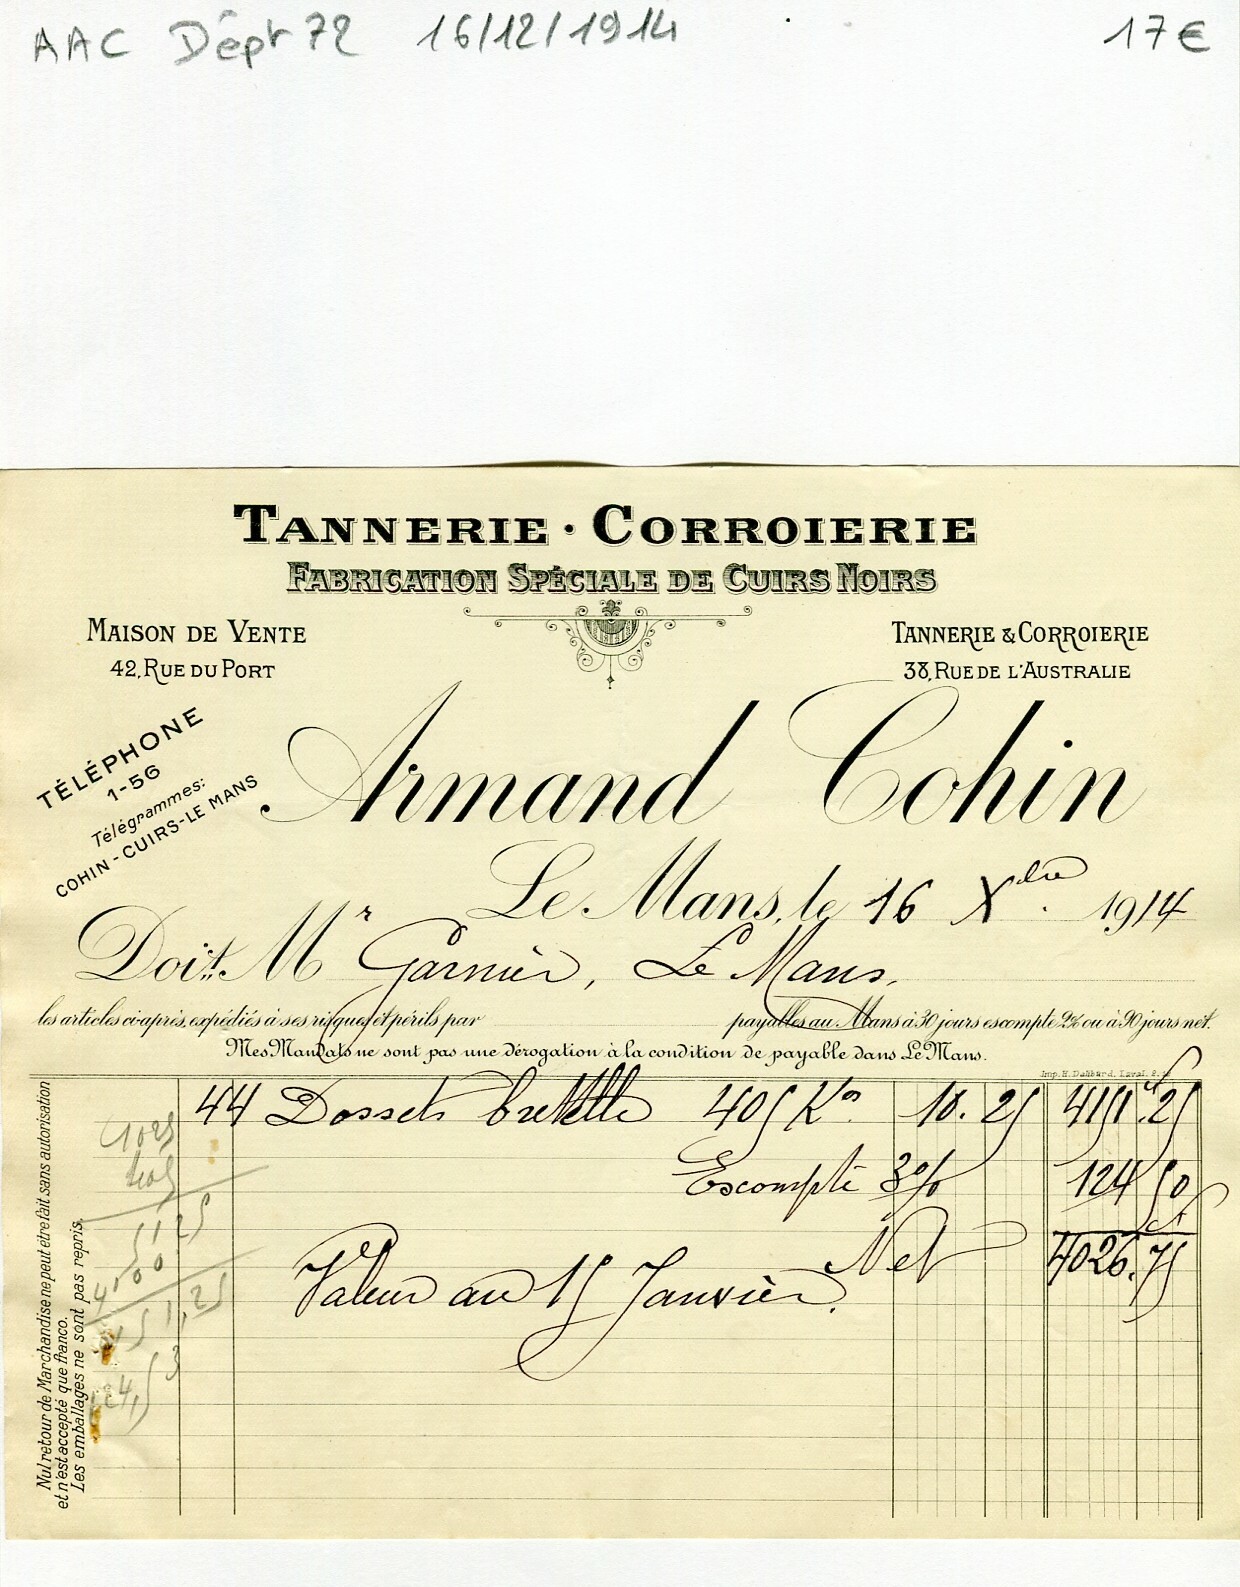 AAC Dépt 72 16/12/1914 17€
TANNERIE · CORROIERIE
FABRICATION SPÉCIALE DE CUIRS NOIRS
MAISON DE VENTE
42, RUE DU PORT
TANNERIE & CORROIERIE
38, RUE DE L'AUSTRALIE
TÉLÉPHONE
1-56
Télégrammes:
COHIN-CUIRS-LE MANS
Armand Cohin
Le Mans, le 16 Xbre 1914
Doit Mr Garnier, Le Mans.
les articles ci-après, expédiés à ses risques et périls par payables au Mans à 30 jours escompte 2% ou à 90 jours net.
Mes Mandats ne sont pas une dérogation à la condition de payable dans Le Mans.
44 Dossets 405 Kos 10.25 4151.25
Escompte 3% 124 50
Net 4026.75
Valeur au 15 Janvier.
Nul retour de Marchandise ne peut être fait sans autorisation
et n'est accepté que franco.
Les emballages ne sont pas repris.
5125